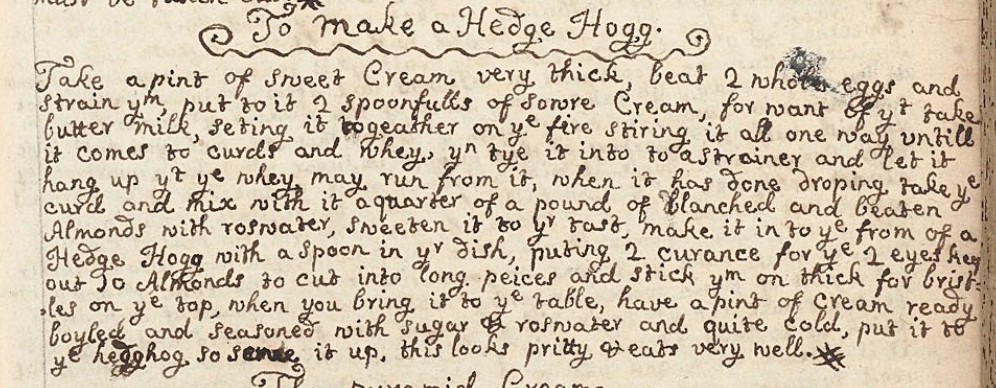 To make a Hedge Hogg.
Take a pint of sweet Cream very thick, beat 2 whole eggs and
strain ym, put to it 2 spoonfulls of sowre Cream, for want of yt take
butter milk, seting it togeather on ye fire stiring it all one way, untill
it comes to curds and whey, yn tye it into to a strainer and let it
hang up yt ye whey may run from it, when it has done droping take ye
curd and mix with it a quarter of a pound of blanched and beaten
Almonds with roswater, sweeten it to yr tast, make it in to ye from of a
Hedge Hogg with a spoon in yr dish, puting 2 curance for ye 2 eyes
out Almonds to cut into long peices and stick ym on thick for brist-
les on ye top, when you bring it to ye table, have a pint of Cream ready
boyled and seasoned with sugar & roswater and quite cold, put it to
ye hedghog so serve it up, this looks pritty & eats very well.